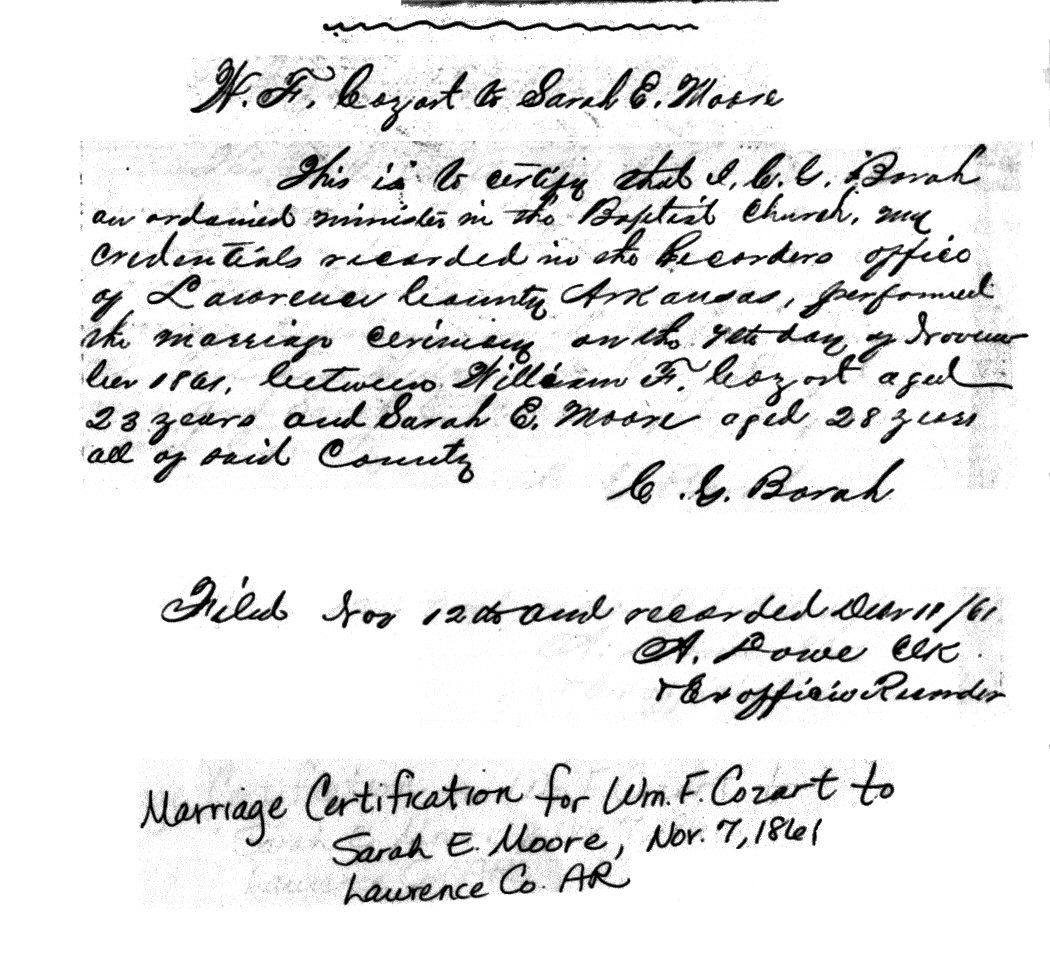 W. F. Cozort to Sarah E. Moore
This is to certify that I, C. G. Borah
an ordained minister in the Baptist Church, my
credentials recorded in the Recorders office
of Lawrence County Arkansas, performed
the marriage cerimony on the 7th day of Novem
ber 1861, between William F. Cozort aged
23 years and Sarah E. Moore aged 28 years
all of said County
C. G. Borah
Filed Nov 12th and recorded Decr 11/61
A. Lowe Clk
& Ex officio Recorder
Marriage Certification for Wm. F. Cozart to
Sarah E. Moore, Nov. 7, 1861
Lawrence Co. AR